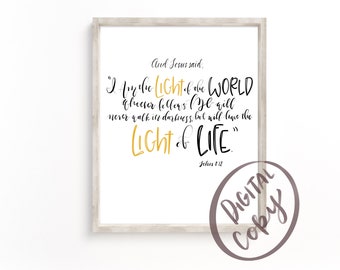 And Jesus said,
"I Am the LIGHT of the WORLD
Whoever follows Me will
never walk in darkness, but will have the
LIGHT of LIFE."
John 8:12
DIGITAL
COPY